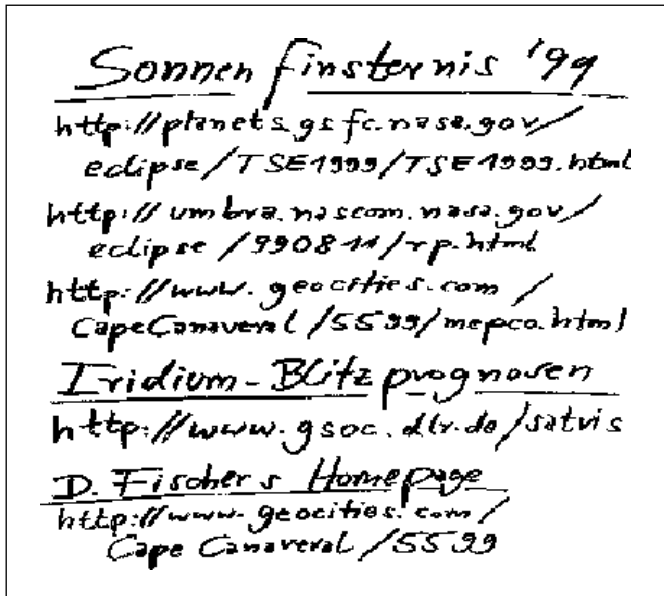 Sonnenfinsternis '99
http://planets.gsfc.nasa.gov/
eclipse/TSE1999/TSE1999.html
http://umbra.nascom.nasa.gov/
eclipse/990811/rp.html
http://www.geocities.com/
CapeCanaveral/5599/mepco.html
Iridium-Blitzprognosen
http://www.gsoc.dlr.de/satvis
D. Fischers Homepage
http://www.geocities.com/
CapeCanaveral/5599